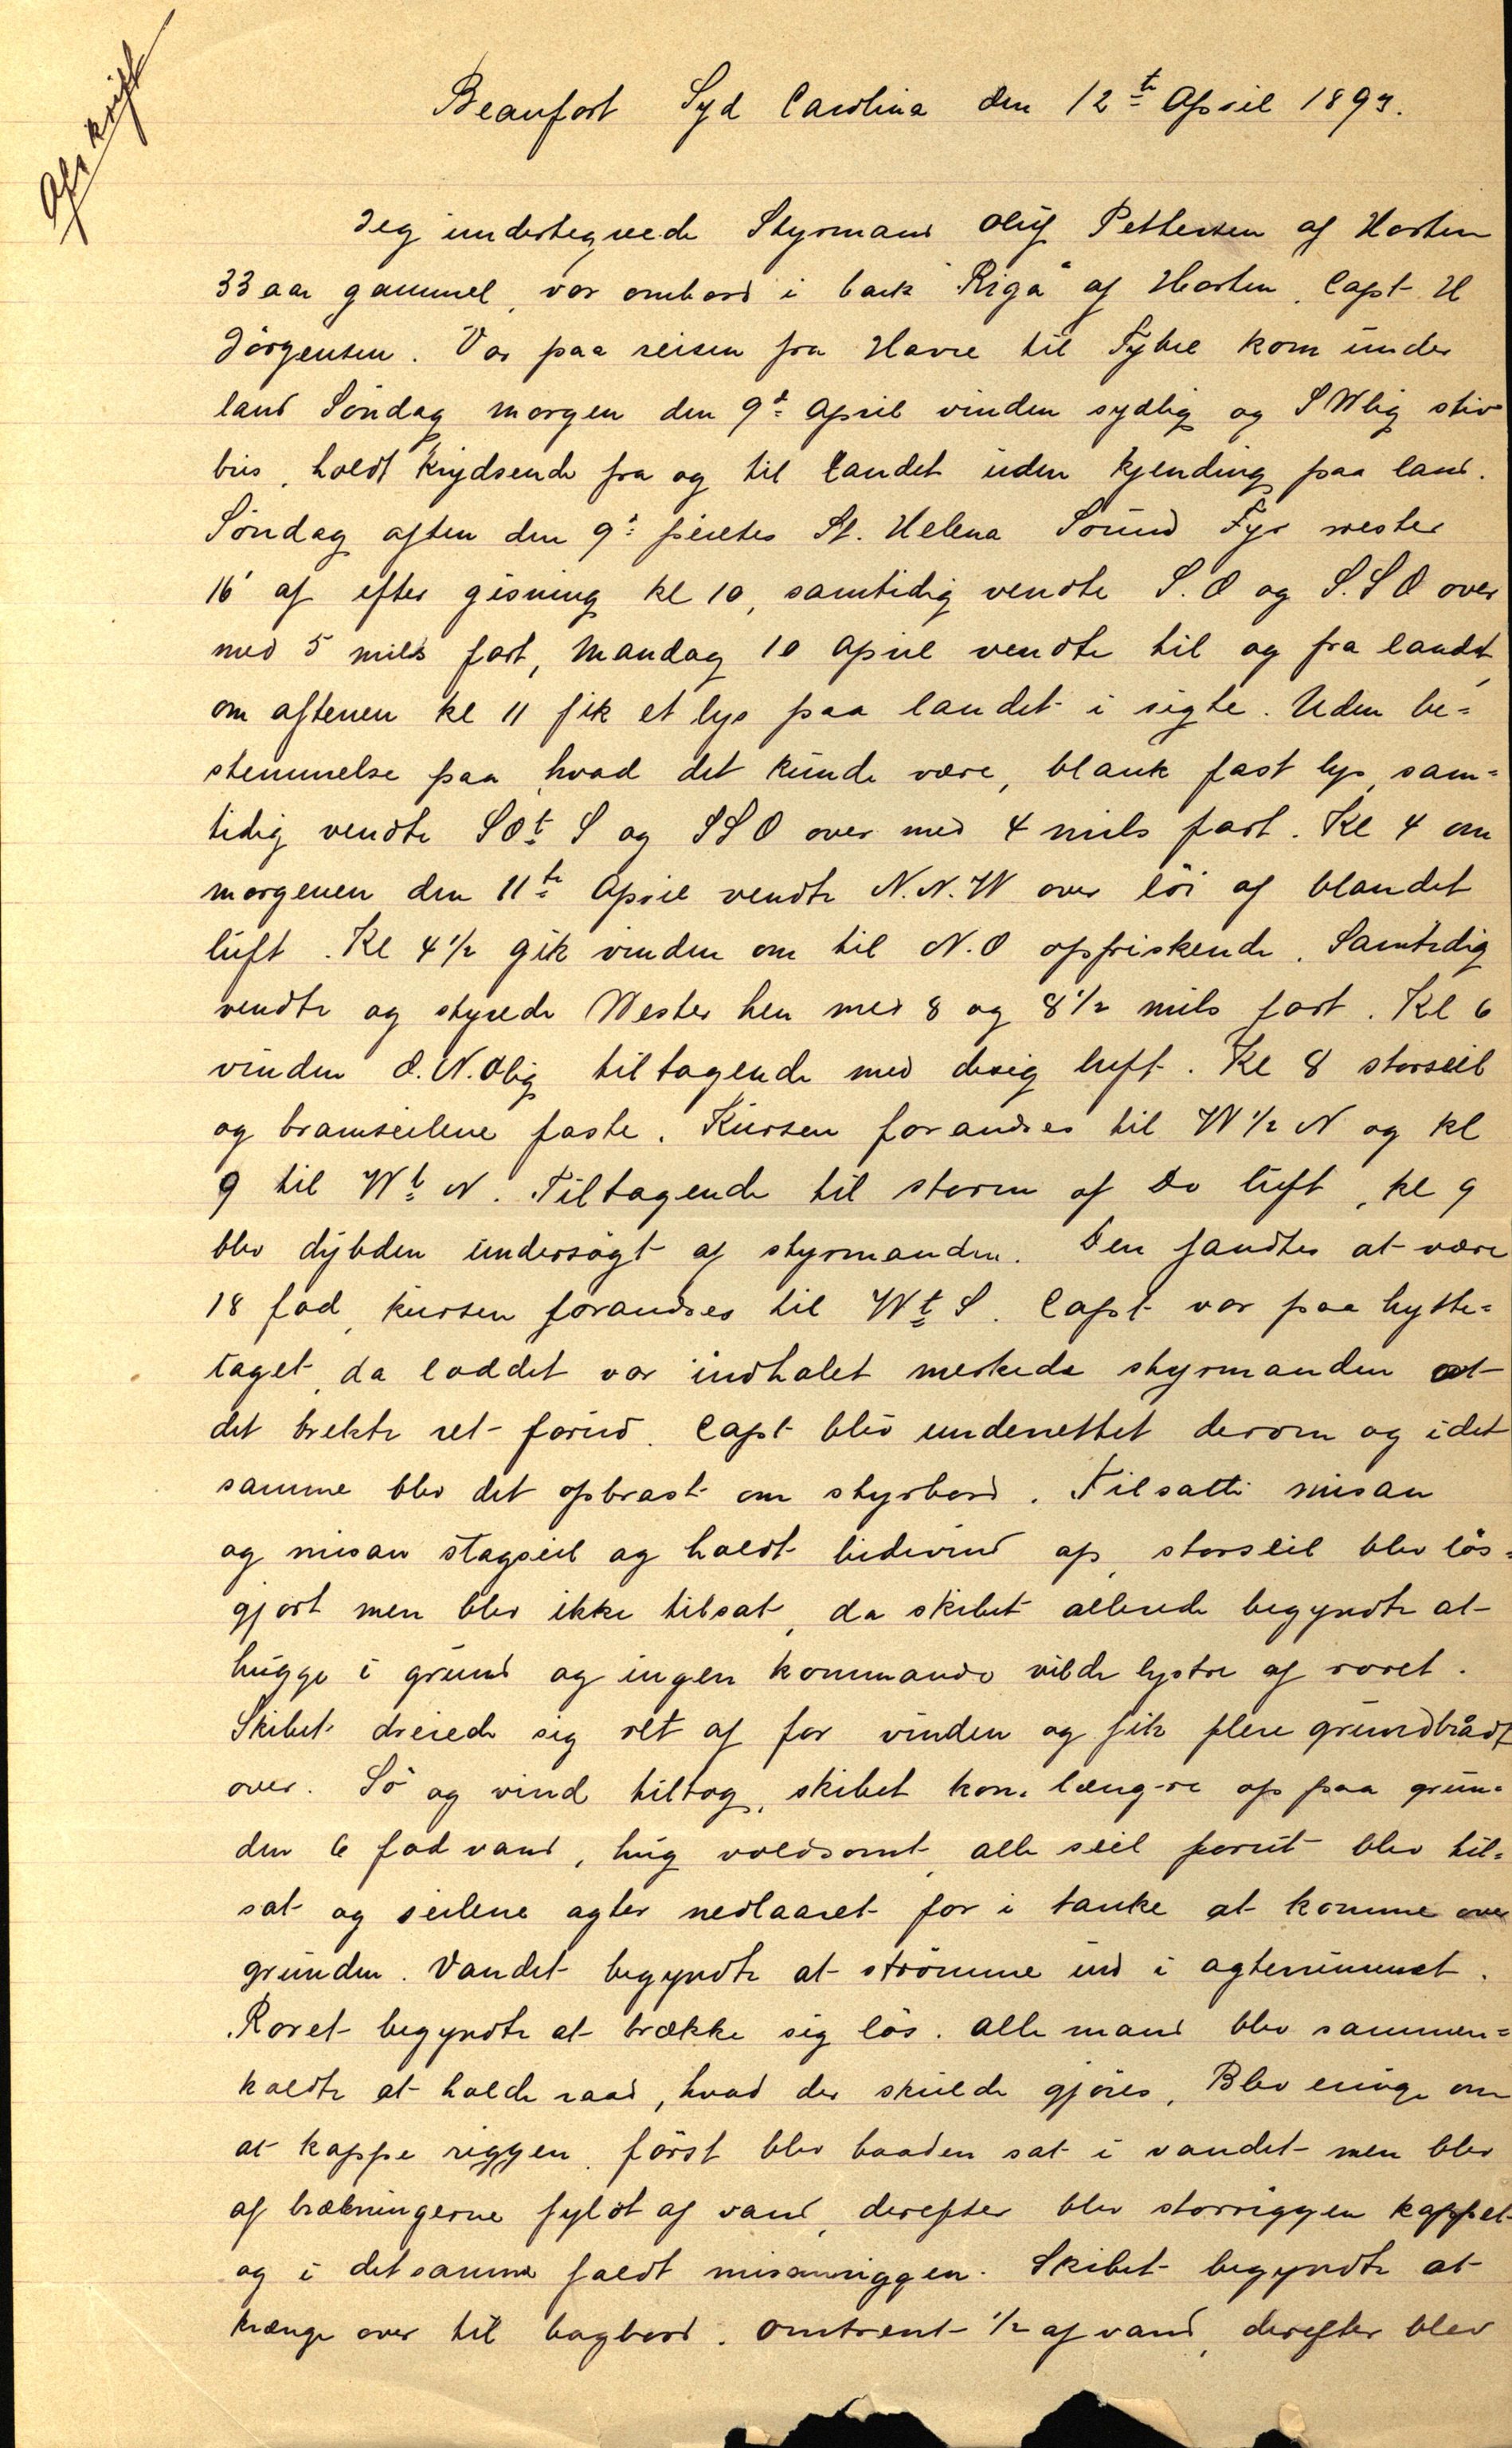 Afskrift
Beaufort Syd Carolina den 12te April 1893.
Jeg undertegnede Styrmand Oluf Pettersen af Horten
33 aar gammel, var ombord i bark "Riga" af Horten. Capt H
Jörgensen. Var paa reisen fra Havre til Tybee kom under
land Söndag morgen den 9de April vinden sydlig og SWlig stiv
bris, holdt krydsende fra og til landet uden kjending paa land.
Söndag aften den 9de peiltes St. Helena Sound Fyr vester
16' af efter gisning kl 10, samtidig vendte S.O og S.S O over
med 5 mils fart, Mandag 10 April vendte til og fra landet,
om aftenen kl 11 fik et lys paa landet i sigte. Uden be=
stemmelse paa hvad det kunde være, blank fast lys, sam=
tidig vendte SOt S og SSO over med 4 mils fart. Kl 4 om
morgenen den 11te April vendte N.N.W over löi af blandet
luft. Kl 4 1/2 gik vinden om til N.O opfriskende. Samtidig
vendte og styrede Wester hen med 8 og 8 1/2 mils fart. Kl 6
vinden O.N.Olig tiltagende med disig luft. Kl 8 storseil
og bramseilene faste. Kursen forandres til W 1/2 N og kl
9 til Wt N. Tiltagende til storm af Do luft, kl 9
blev dybden undersögt af styrmanden. Den fandtes at være
18 fod, kursen forandres til Wt S. Capt var paa hytte=
taget, da loddet var indhalet merkede styrmanden at
det brekte ret forud. Capt blev underrettet derom og i det
samme blev det opbrast om styrbord. Tilsatte misan
og misan stagseil og holdt bidevind op, storseil blev lös=
gjort men blev ikke tilsat, da skibet allerede begyndte at
hugge i grund og ingen kommando vilde lystre af roret.
Skibet dreiede sig ret af for vinden og fik flere grundbrådt
over. Sö og vind tiltog, skibet kom læng-re op paa grun=
den 6 fod vand, hug voldsomt, alle seil forut blev til=
sat og seilene agter nedlaaret for i tanke at komme over
grunden. Vandet begyndte at strömme ind i agterrummet.
Roret begyndte at brække sig lös. alle mand blev sammen=
kaldte at holde raad, hvad der skulde gjöres, Blev enige om
at kappe riggen, först blev baaden sat i vandet men blev
af brækningerne fyldt af vand, derefter blev storriggen kappet
og i det samme faldt misanriggen. Skibet begyndte at
krænge over til bagbord. omtrent 1/2 af vand, derefter blev